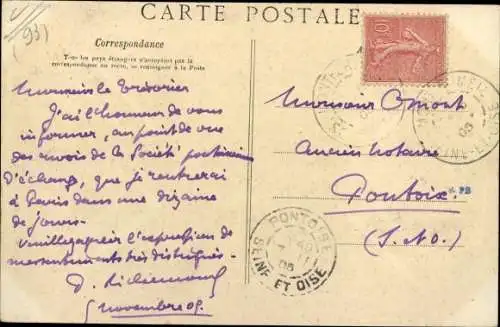 (93)
CARTE POSTALE
Correspondance
Tous les pays étrangers n'acceptent pas la
correspondance au recto, se renseigner à la Poste
Monsieur le Trésorier
J'ai l'honneur de vous
informer, au point de vue
des envois de la Société
d'échang, que je rentrerai
à Paris dans une dizaine
de jours.
Veuillez agréer l'expression de
mes sentiments très distingués.
5 novembre 05.
10
Monsieur Cmont
Ancien Notaire
Pontoise
(S.&O.)
PONTOISE
05
SEINE ET OISE